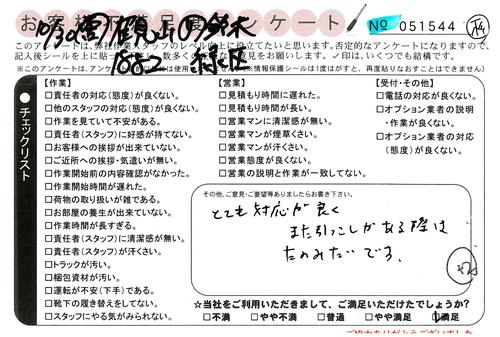 お客様満足度アンケート
No 051544
このアンケートは、弊社作業スタッフのレベル向上に役立てたいと思います。否定的なアンケートになりますので、
記入後シールを上に貼り
見をお願いします。✓印は、いくつでも結構です。
情報保護シールは1度がはすと、再度貼りなおすことはできません)
チェックリスト
【作業】
□責任者の対応(態度)が良くない。
□他のスタッフの対応(態度)が良くない。
□作業を見ていて不安がある。
□責任者(スタッフ)に好感が持てない。
□お客様への挨拶が出来ていない。
□ご近所への挨拶・気遣いが無い。
□作業開始前の内容確認がなかった。
□作業開始時間が遅れた。
□荷物の取り扱いが雑である。
□お部屋の養生が出来ていない。
□作業時間が長すぎる。
□責任者(スタッフ)に清潔感が無い。
□責任者(スタッフ)が汗くさい。
□トラックが汚い。
□梱包資材が汚い。
□運転が不安(下手)である。
□靴下の履き替えをしてない。
□スタッフにやる気がみられない。
【営業】
□見積もり時間に遅れた。
□見積もり時間が長い。
□営業マンに清潔感が無い。
□営業マンが煙草くさい。
□営業マンが汗くさい。
□営業態度が良くない。
□営業の説明と作業が一致してない。
【受付・その他】
□電話の対応が良くない。
□オプション業者の説明
・作業が良くない。
□オプション業者の対応
(態度)が良くない。
その他、ご意見・ご要望等ありましたらお書き下さい。
とても対応が良く
また引っこしがある際は
たのみたいです。
☆当社をご利用いただきまして、ご満足いただけたでしょうか?
□不満 □やや不満 □普通 □やや満足 満足
ご協力ありがとうございました